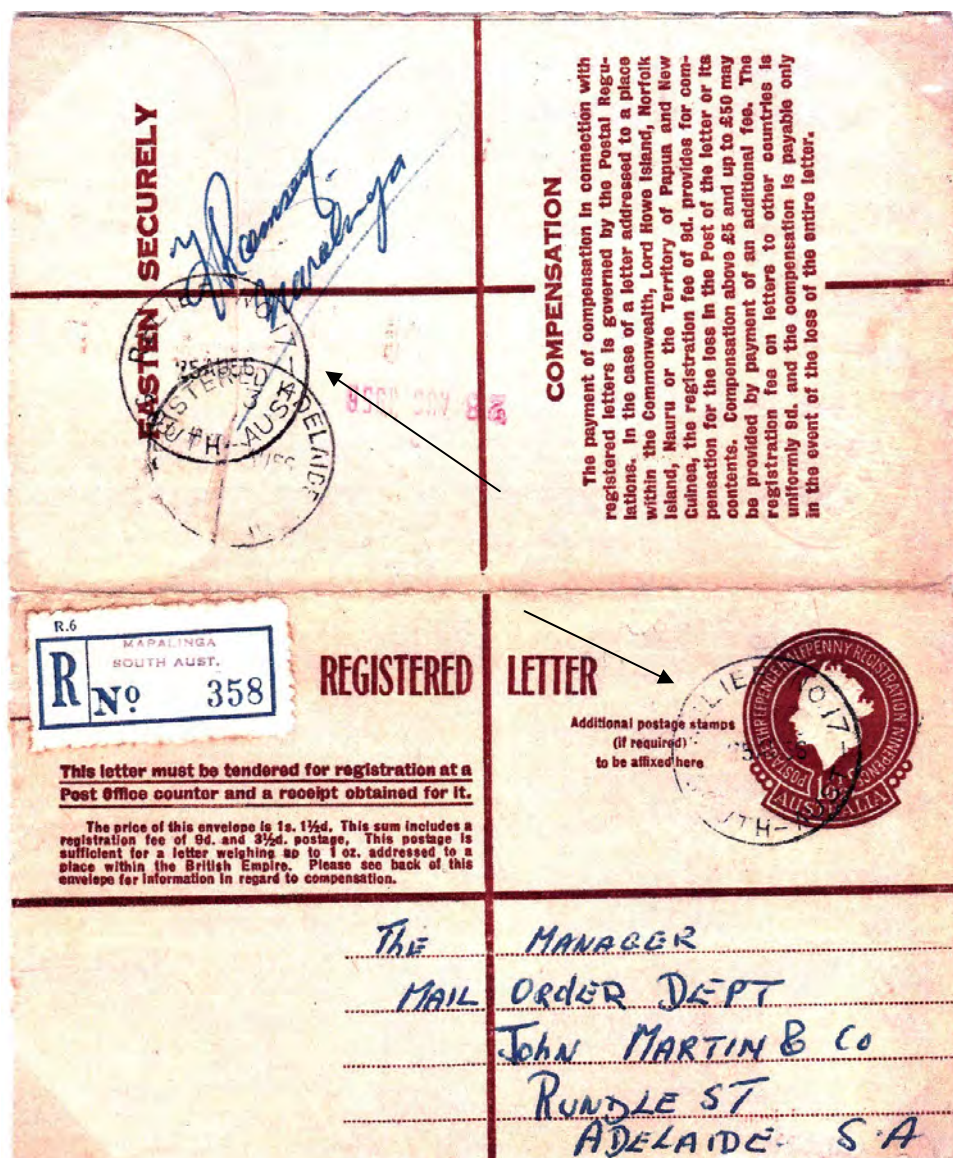 FASTEN SECURELY
J Ramsey
Maralinga
RELIEF NO.17
25AU56
REGISTERED ADELAIDE
STH-AUST
COMPENSATION
The payment of compensation in connection with
registered letters is governed by the Postal Regu-
lations. In the case of a letter addressed to a place
within the Commonwealth, Lord Howe Island, Norfolk
Island, Nauru or the Territory of Papua and New
Guinea, the registration fee of 9d. provides for com-
pensation for the loss in the Post of the letter or its
contents. Compensation above £5 and up to £50 may
be provided by payment of an additional fee. The
registration fee on letters to other countries is
uniformly 9d. and the compensation is payable only
in the event of the loss of the entire letter.
R.6
MAPALINGA
SOUTH AUST.
R No 358
REGISTERED LETTER
Additional postage stamps
(if required)
to be affixed here
RELIEF NO.17
STH-AUST
POSTAGE THREEPENCE HALFPENNY REGISTRATION NINEPENCE
AUSTRALIA
This letter must be tendered for registration at a
Post Office counter and a receipt obtained for it.
The price of this envelope is 1s. 1½d. This sum includes a
registration fee of 9d. and 3½d. postage. This postage is
sufficient for a letter weighing up to 1 oz. addressed to a
place within the British Empire. Please see back of this
envelope for information in regard to compensation.
The MANAGER
MAIL ORdER DEPT
JohN MARTIN & Co
RUNDLE ST
ADELAIDE. S.A